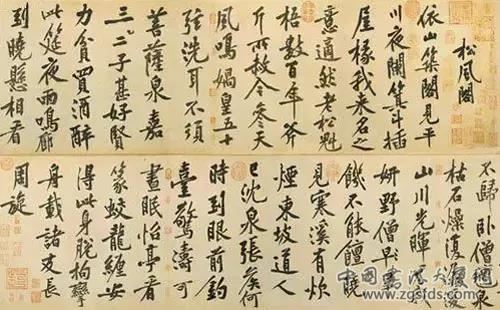 松風閣
依山築閣見平
川夜闌箕斗插
屋椽我來名之
意適然老松魁
梧數百年斧
斤所赦今參天
風鳴媧皇五十
弦洗耳不須
菩薩泉嘉
三二子甚好賢
力貧買酒醉
此筵夜雨鳴廊
到曉懸相看
不歸卧僧氈泉
枯石燥復潺湲
山川光暉為我
妍野僧早
饑不能饘曉
見寒溪有炊
煙東坡道人
已沈泉張侯何
時到眼前釣
臺驚濤可
晝眠怡亭看
篆蛟龍纏安
得此身脫拘攣
舟載諸友長
周旋
中国书法大赛网
www.zgsfds.com